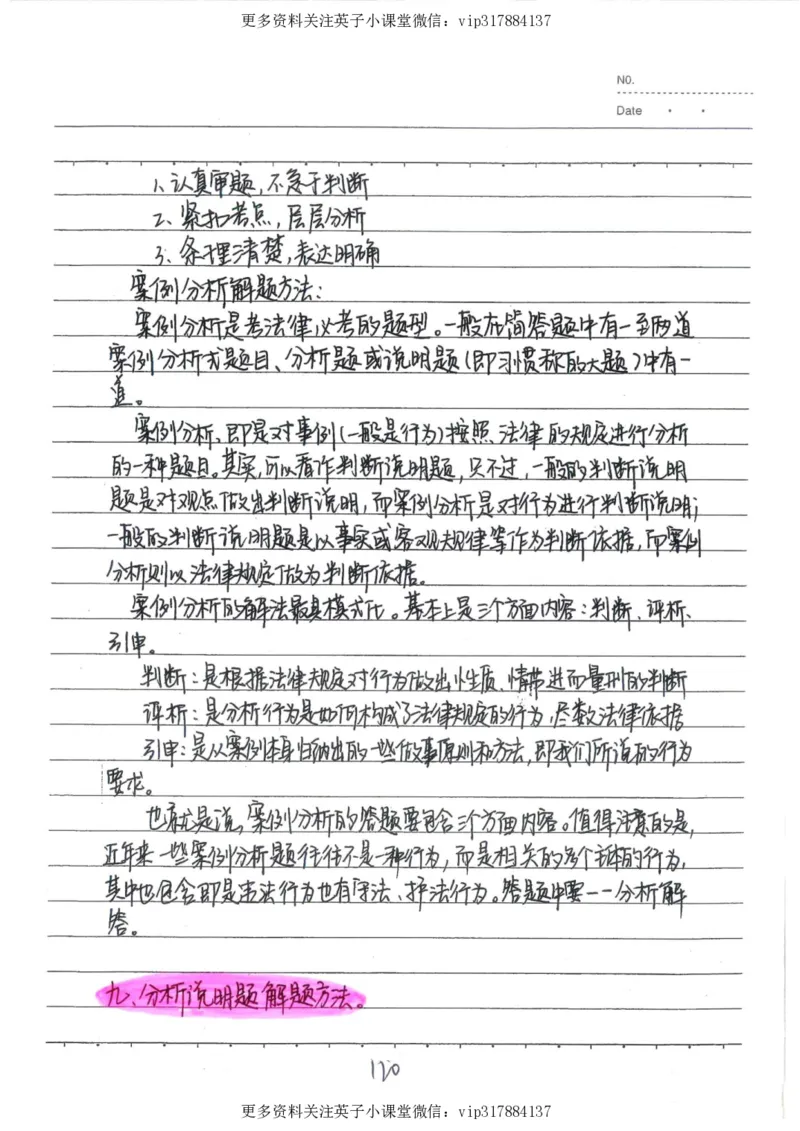 更多资料关注英子小课堂微信：vip317884137
NO.
Date
1、认真审题，不急于判断
2、紧扣考点，层层分析
3、条理清楚，表达明确
案例分析解题方法：
案例分析是考法律必考的题型。一般在简答题中有一至两道
案例分析式题目、分析题或说明题（即习惯称的大题）中有一
道。
案例分析、即是对事例（一般是行为）按照法律的规定进行分析
的一种题目。其实，可以看作判断说明题，只不过，一般的判断说明
题是对观点做出判断说明，而案例分析是对行为进行判断说明；
一般的判断说明题是以事实或客观规律等作为判断依据，而案例
分析则以法律规定做为判断依据。
案例分析的解法最具模式化。基本上是三个方面内容：判断、评析、
引申。
判断：是根据法律规定对行为做出性质、情节进而量刑的判断
评析：是分析行为是如何构成了法律规定的行为，尽数法律依据
引申：是从案例本身归纳出的一些做事原则和方法，即我们所说的行为
要求。
也就是说，案例分析的答题要包含三个方面内容。值得注意的是，
近年来一些案例分析题往往不是一种行为，而是相关的多个主体的行为，
其中也包含即是违法行为也有守法、护法行为。答题中要一一分析解
答。
九、分析说明题解题方法。
120
更多资料关注英子小课堂微信：vip317884137